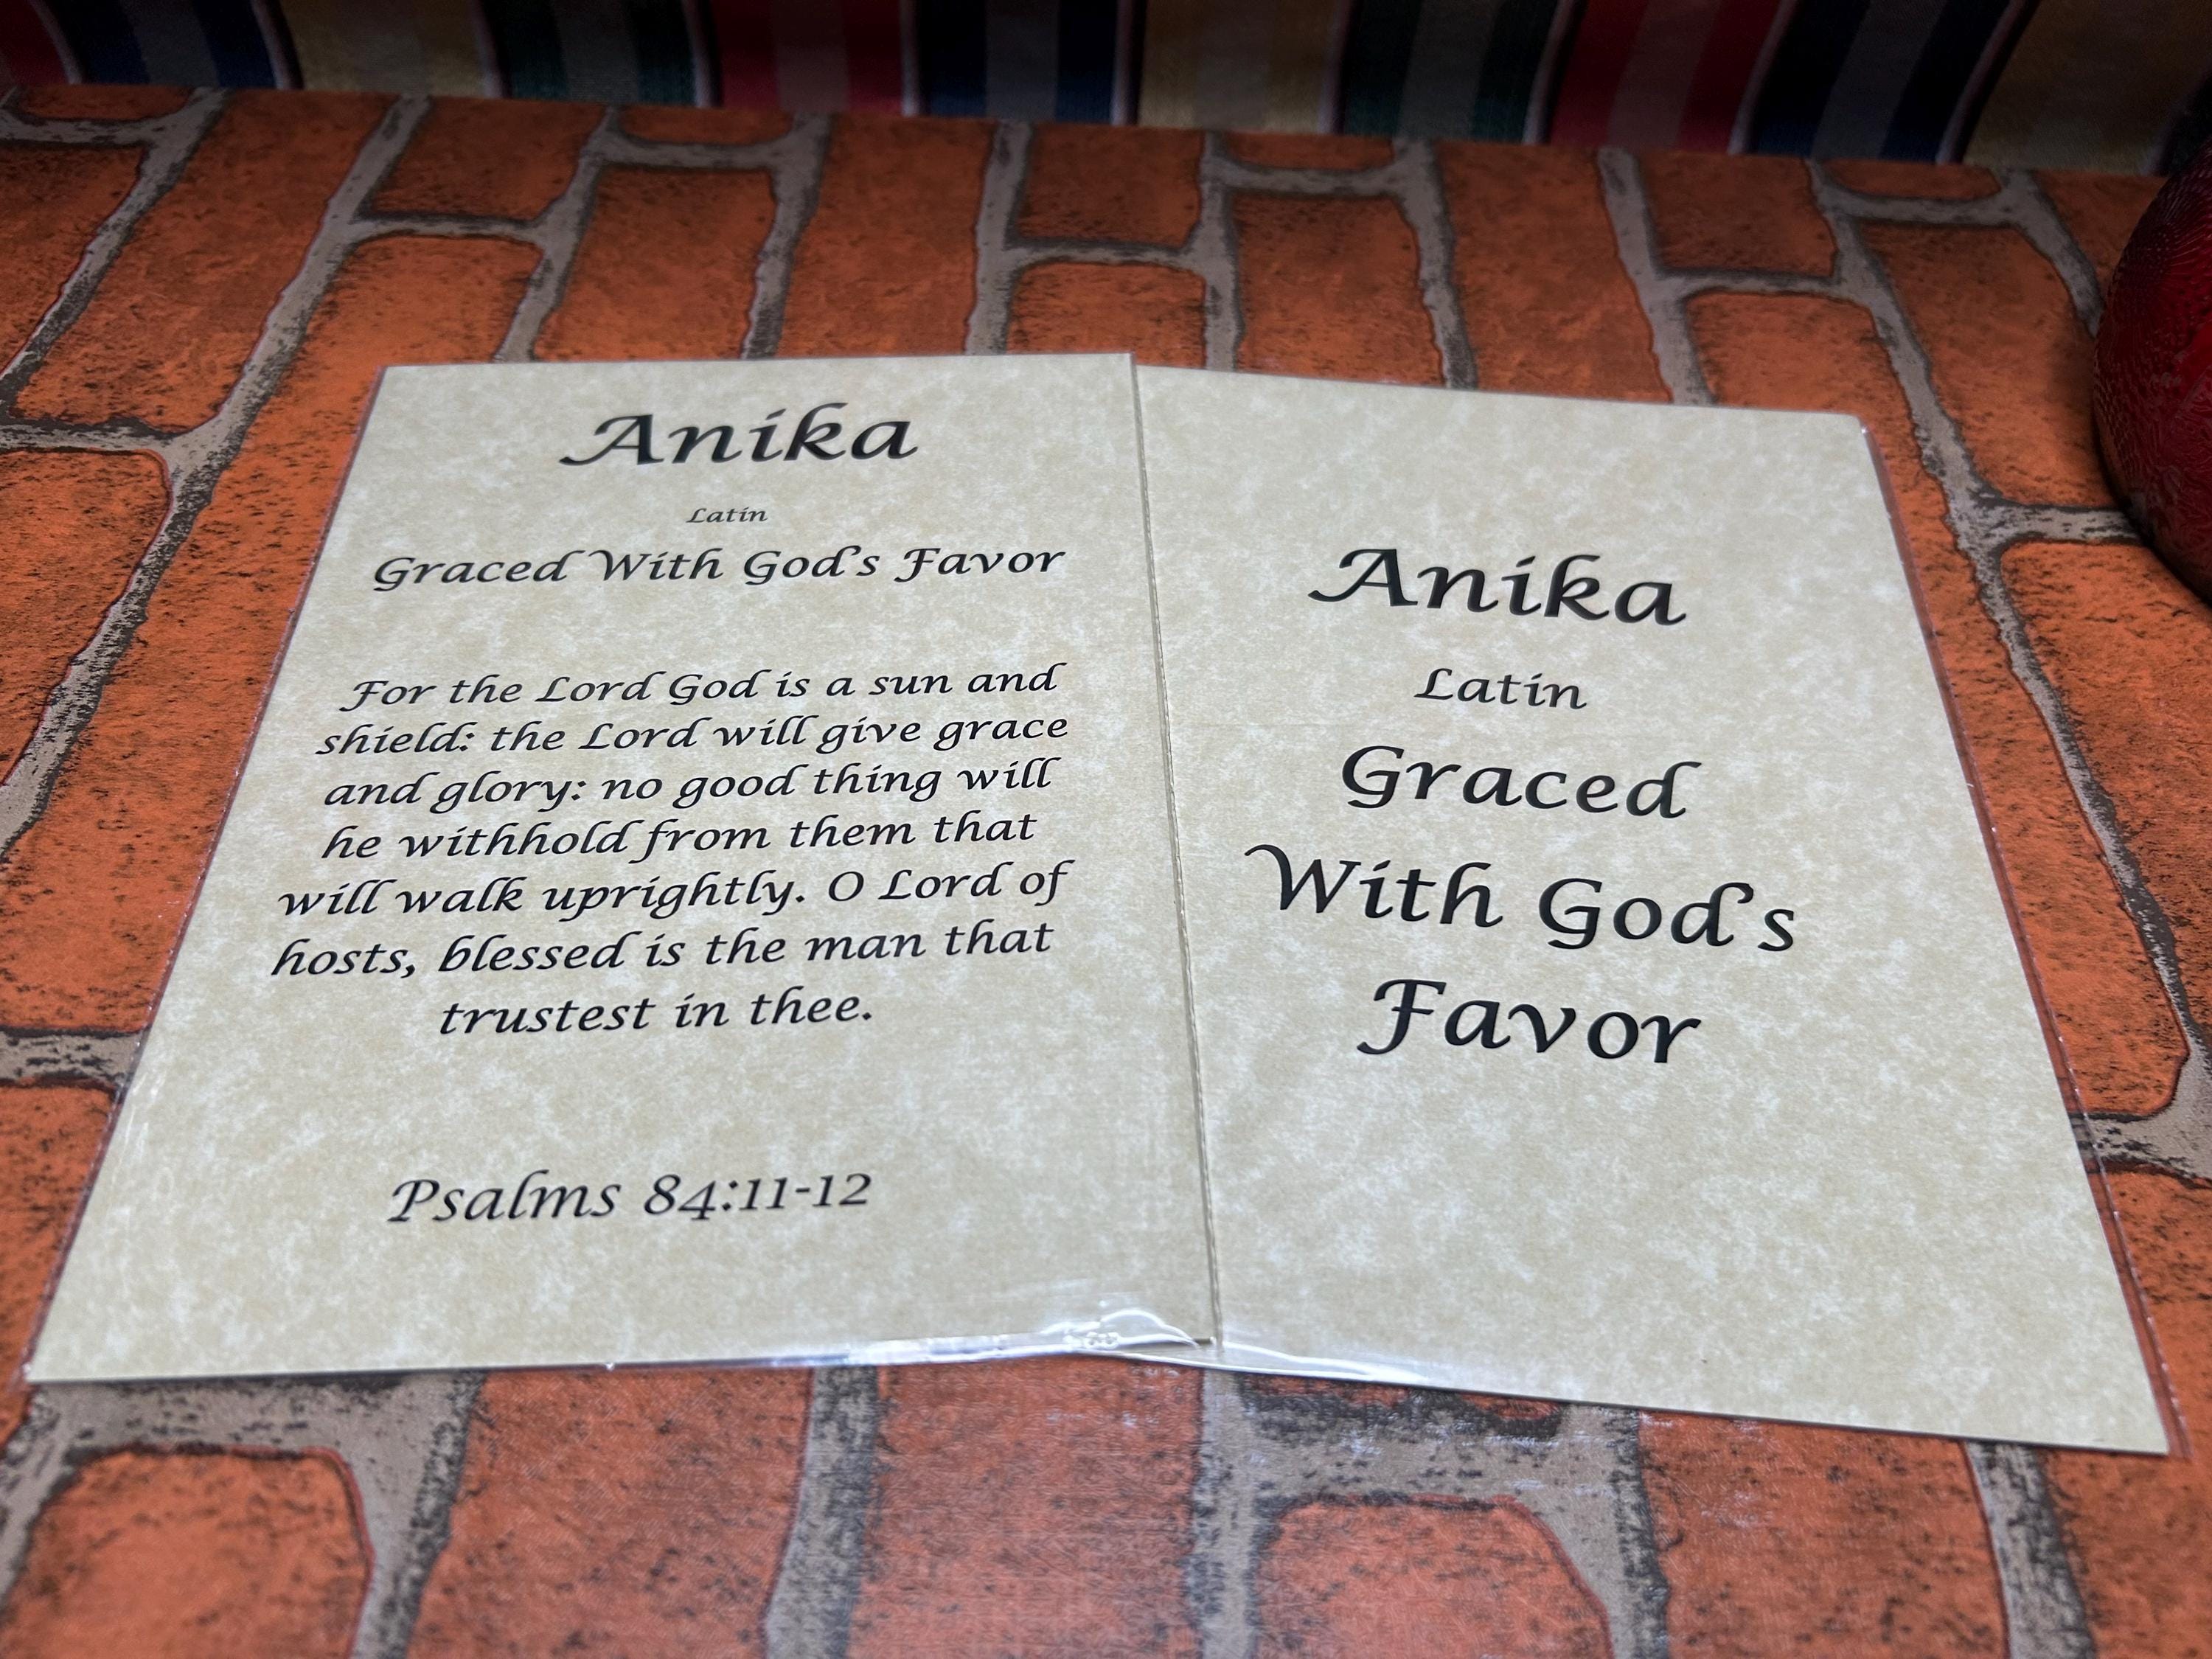 Anika
Latin
Graced With God's Favor
For the Lord God is a sun and
shield: the Lord will give grace
and glory: no good thing will
he withhold from them that
will walk uprightly. O Lord of
hosts, blessed is the man that
trustest in thee.
Psalms 84:11-12
Anika
Latin
Graced
With God's
Favor